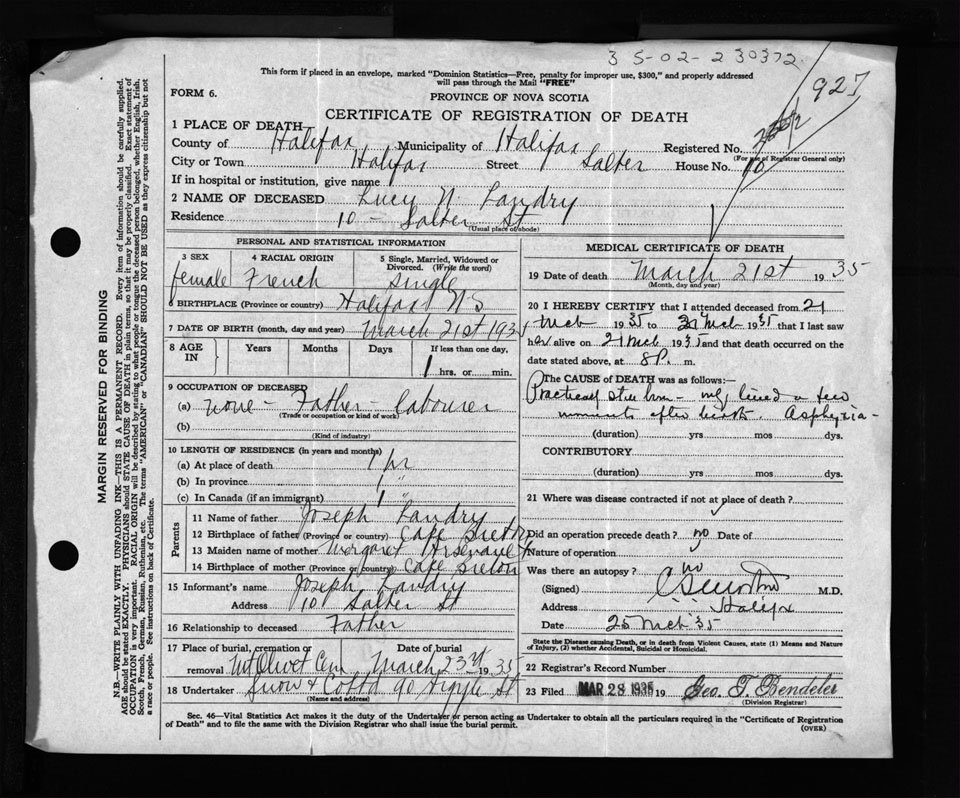 35-02-230372
927
This form if placed in an envelope, marked "Dominion Statistics—Free, penalty for improper use, $300," and properly addressed
will pass through the Mail "FREE"
FORM 6.
PROVINCE OF NOVA SCOTIA
CERTIFICATE OF REGISTRATION OF DEATH
1 PLACE OF DEATH
County of Halifax Municipality of Halifax Registered No.
(For use of Registrar General only)
City or Town Halifax Street Salter House No. 10
If in hospital or institution, give name
2 NAME OF DECEASED Lucy N Landry
Residence 10 - Salter St
(Usual place of abode)
PERSONAL AND STATISTICAL INFORMATION
3 SEX 4 RACIAL ORIGIN 5 Single, Married, Widowed or Divorced. (Write the word)
female French Single
6 BIRTHPLACE (Province or country) Halifax NS
7 DATE OF BIRTH (month, day and year) March 21st 1935
8 AGE IN Years Months Days If less than one day,
1 hrs. or min.
9 OCCUPATION OF DECEASED
(a) none - Father - labourer
(Trade or occupation or kind of work)
(b)
(Kind of industry)
10 LENGTH OF RESIDENCE (in years and months)
(a) At place of death 1 hr
(b) In province 1 "
(c) In Canada (if an immigrant) 1 "
Parents
11 Name of father Joseph Landry
12 Birthplace of father (Province or country) Cape Breton
13 Maiden name of mother Margaret Arsenault
14 Birthplace of mother (Province or country) Cape Breton
15 Informant's name Joseph Landry
Address 10 Salter St
16 Relationship to deceased Father
17 Place of burial, cremation or removal Date of burial
Mt Olivet Cem March 23rd 1935
18 Undertaker Snow & Co Ltd 90 Argyle St
(Name and address)
MEDICAL CERTIFICATE OF DEATH
19 Date of death March 21st 1935
(Month, day and year)
20 I HEREBY CERTIFY that I attended deceased from 21
Mch 1935 to 21 Mch 1935 that I last saw
her alive on 21 Mch 1935 and that death occurred on the
date stated above, at 8 P. m.
The CAUSE of DEATH was as follows:—
Practically still born - only lived a few
moments after birth. Asphyxia -
(duration) yrs mos dys.
CONTRIBUTORY
(duration) yrs mos dys.
21 Where was disease contracted if not at place of death?
Did an operation precede death? no Date of
Nature of operation
Was there an autopsy? no
(Signed) M.D.
Address Halifax
Date 25 Mch '35
State the Disease causing Death, or in death from Violent Causes, state (1) Means and Nature
of Injury, (2) whether Accidental, Suicidal or Homicidal.
22 Registrar's Record Number
23 Filed MAR 28 1935 19 Geo. T. Bendeler
(Division Registrar)
Sec. 46—Vital Statistics Act makes it the duty of the Undertaker or person acting as Undertaker to obtain all the particulars required in the "Certificate of Registration
of Death" and to file the same with the Division Registrar who shall issue the burial permit.
(OVER)
MARGIN RESERVED FOR BINDING
N.B.—WRITE PLAINLY WITH UNFADING INK—THIS IS A PERMANENT RECORD. Every item of information should be carefully supplied.
AGE should be stated EXACTLY. PHYSICIANS should STATE CAUSE OF DEATH in plain terms, so that it may be properly classified. Exact statement of
OCCUPATION is very important. RACIAL ORIGIN will be described by stating to what people or tongue the deceased person belonged, whether English, Irish,
Scotch, French, German, Russian, Ruthenian, etc. The terms "AMERICAN" or "CANADIAN" SHOULD NOT BE USED as they express citizenship but not
a race or people. See instructions on back of Certificate.